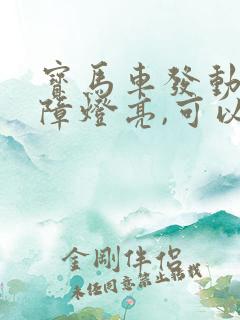 寶馬車發動
障燈亮,可以
金剛伴侶
未經同意禁止轉載